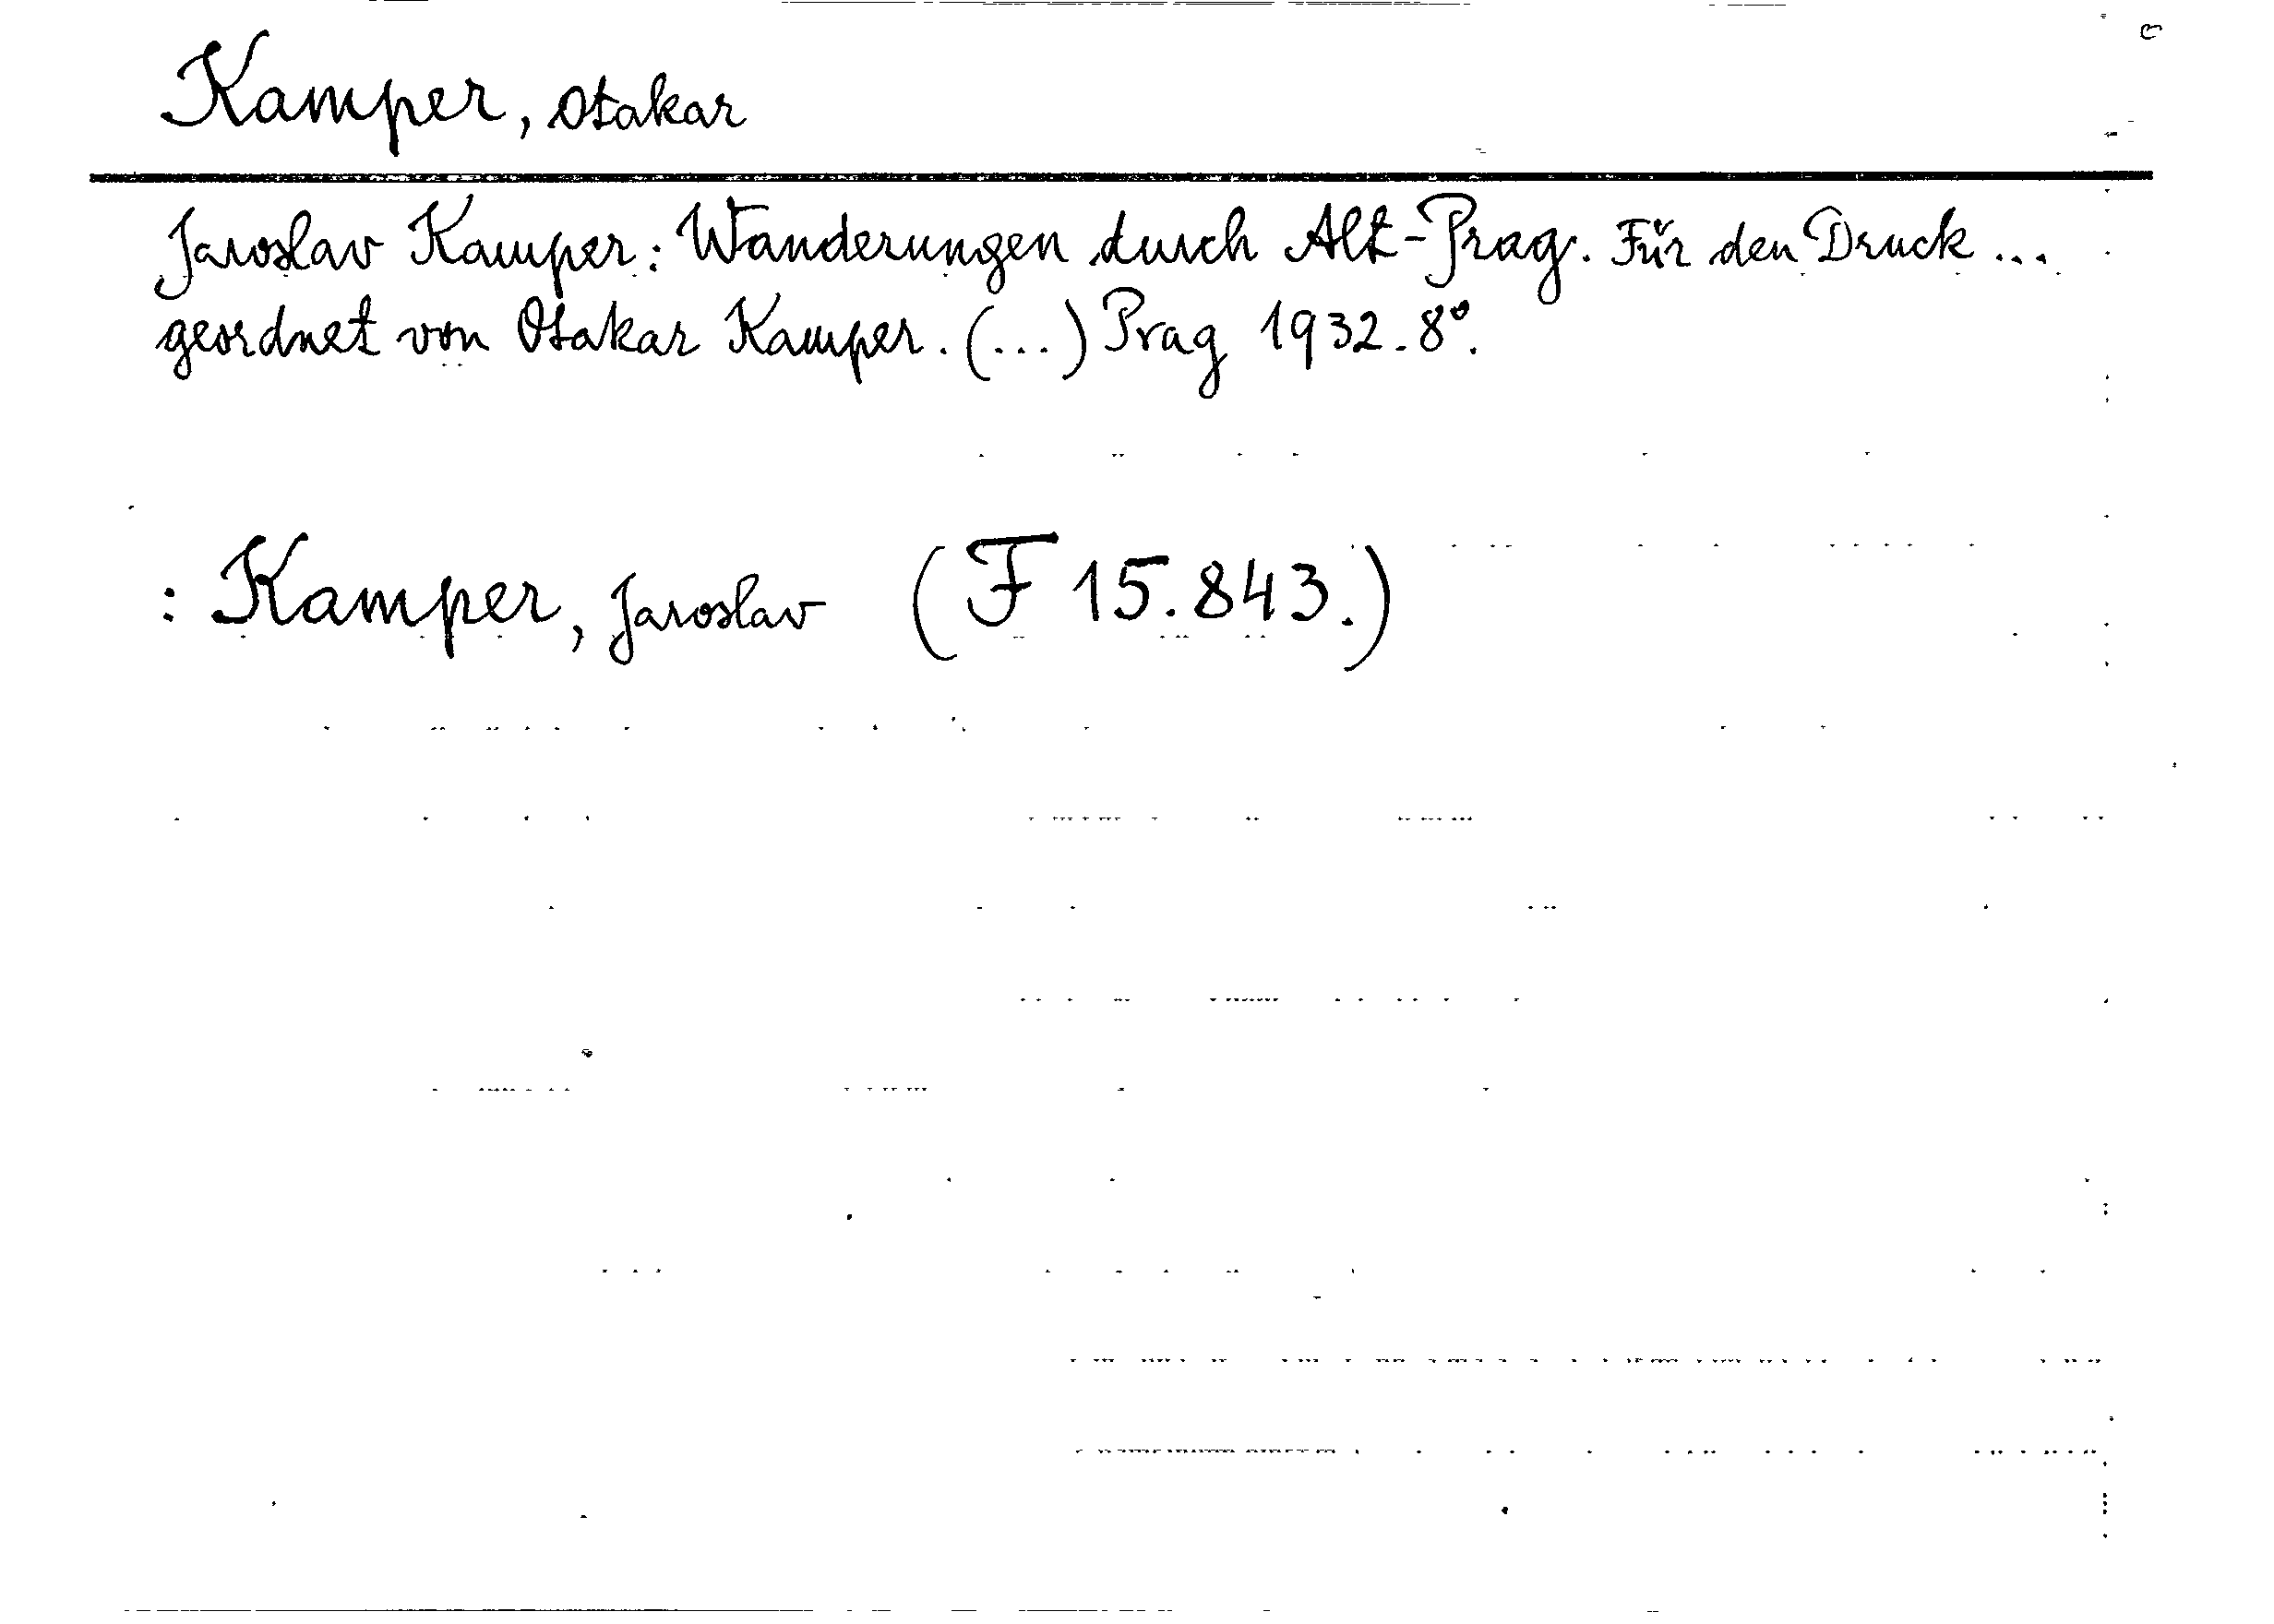 Kamper, Otakar
Jaroslav Kamper: Wanderungen durch Alt-Prag. Für den Druck ...
geordnet von Otakar Kamper. (...) Prag 1932. 8°.
: Kamper, Jaroslav (F 15.843.)